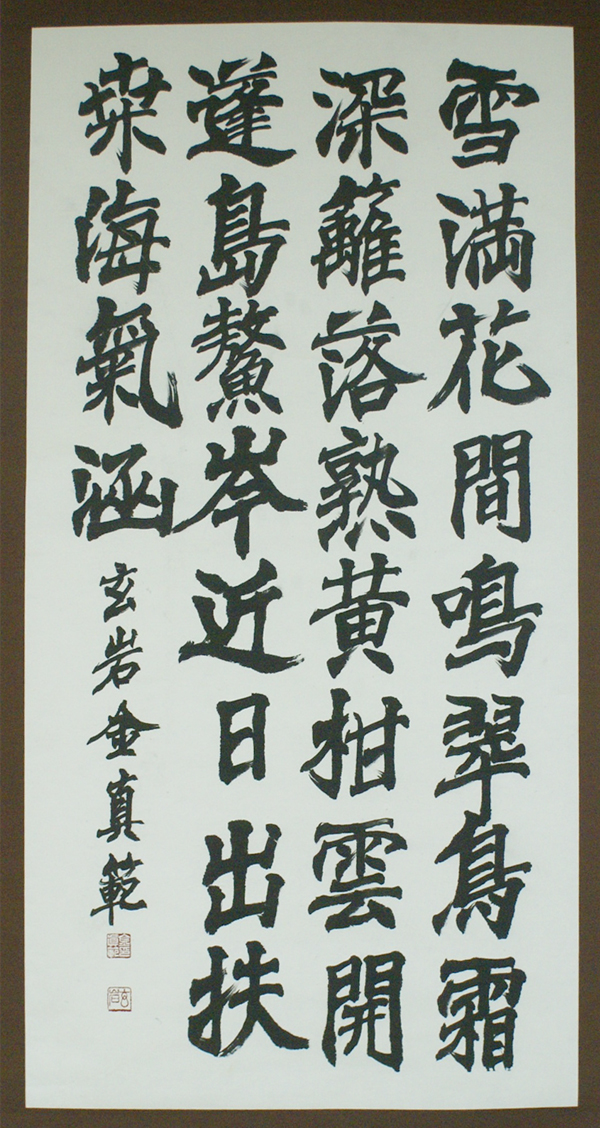 雪満花間鳴翠鳥霜
深籬落熟黄柑雲開
蓬島鰲岑近日出扶
桒海氣涵
玄岩金真範